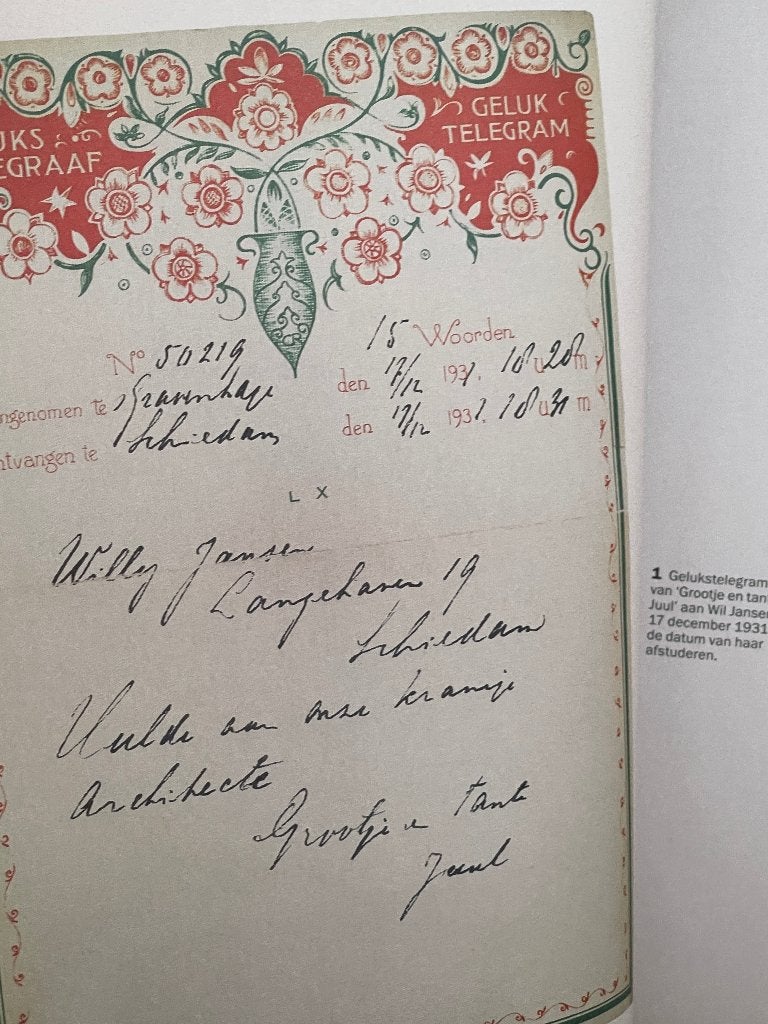 JKS
EGRAAF
GELUK
TELEGRAM
No 50219
15 Woorden
ngenomen te 's Gravenhage
den 17/12 1931. 18 u 28 m
ntvangen te Schiedam
den 17/12 1931. 18 u 31 m
L X
Willy Jansen
Langehaven 19
Schiedam
Hulde aan onze kranige
Architecte
Grootje en Tante
Juul
1 Gelukstelegram
van 'Grootje en tant
Juul' aan Wil Jansen
17 december 1931
de datum van haar
afstuderen.